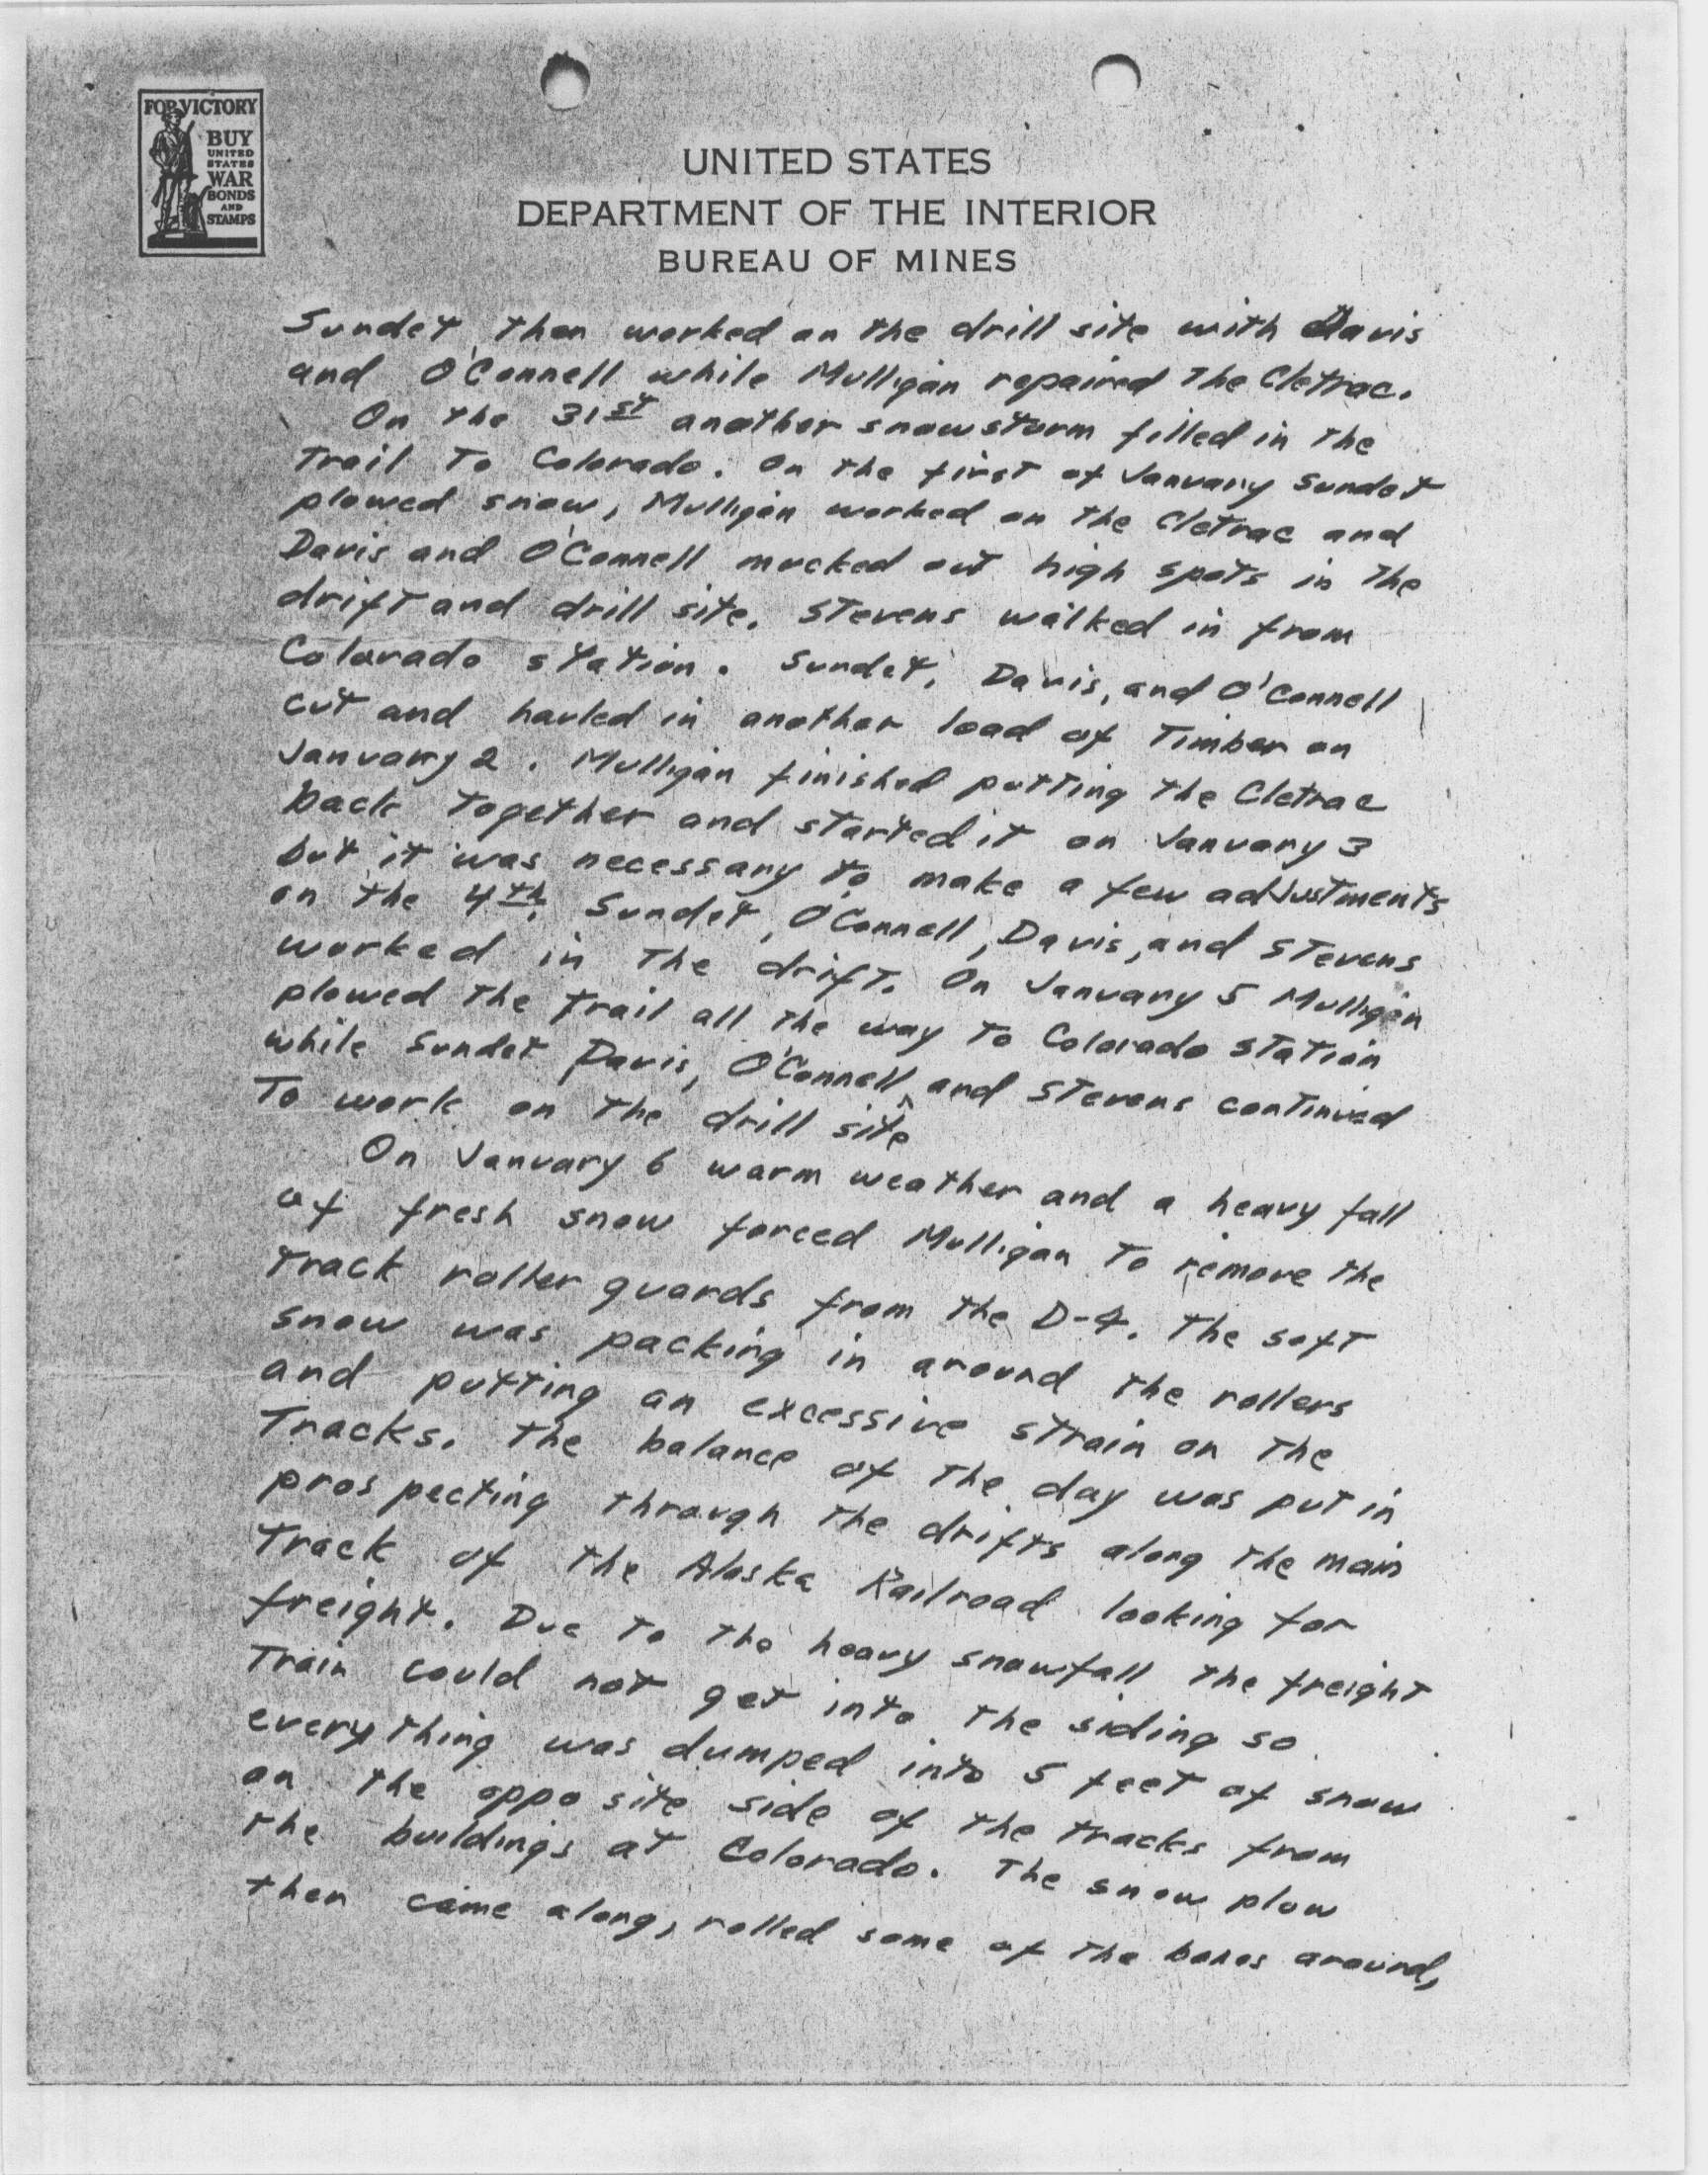 FOR VICTORY
BUY
UNITED
STATES
WAR
BONDS
AND
STAMPS
UNITED STATES
DEPARTMENT OF THE INTERIOR
BUREAU OF MINES
Sundet then worked on the drill site with Davis
and O'Connell while Mulligan repaired the Cletrac.
On the 31st another snowstorm filled in the
Trail To Colorado. On the first of January Sundet
plowed snow, Mulligan worked on the Cletrac and
Davis and O'Connell mucked out high spots in the
drift and drill site. Stevens walked in from
Colorado station. Sundet, Davis, and O'Connell
cut and hauled in another load of Timber on
January 2. Mulligan finished putting the Cletrac
back together and started it on January 3
but it was necessary to make a few adjustments
on the 4th. Sundet, O'Connell, Davis, and Stevens
worked in the drift. On January 5 Mulligan
plowed the trail all the way to Colorado station
while Sundet Davis, O'Connell, and Stevens continued
To work on the drill site
On January 6 warm weather and a heavy fall
of fresh snow forced Mulligan to remove the
track roller guards from the D-4. The soft
snow was packing in around the rollers
and putting an excessive strain on the
Tracks. The balance of the day was put in
prospecting through the drifts along the main
track of the Alaska Railroad looking for
freight. Due to the heavy snowfall the freight
Train could not get into the siding so
everything was dumped into 5 feet of snow
on the opposite side of the tracks from
the buildings at Colorado. The snow plow
then came along, rolled some of the boxes around,